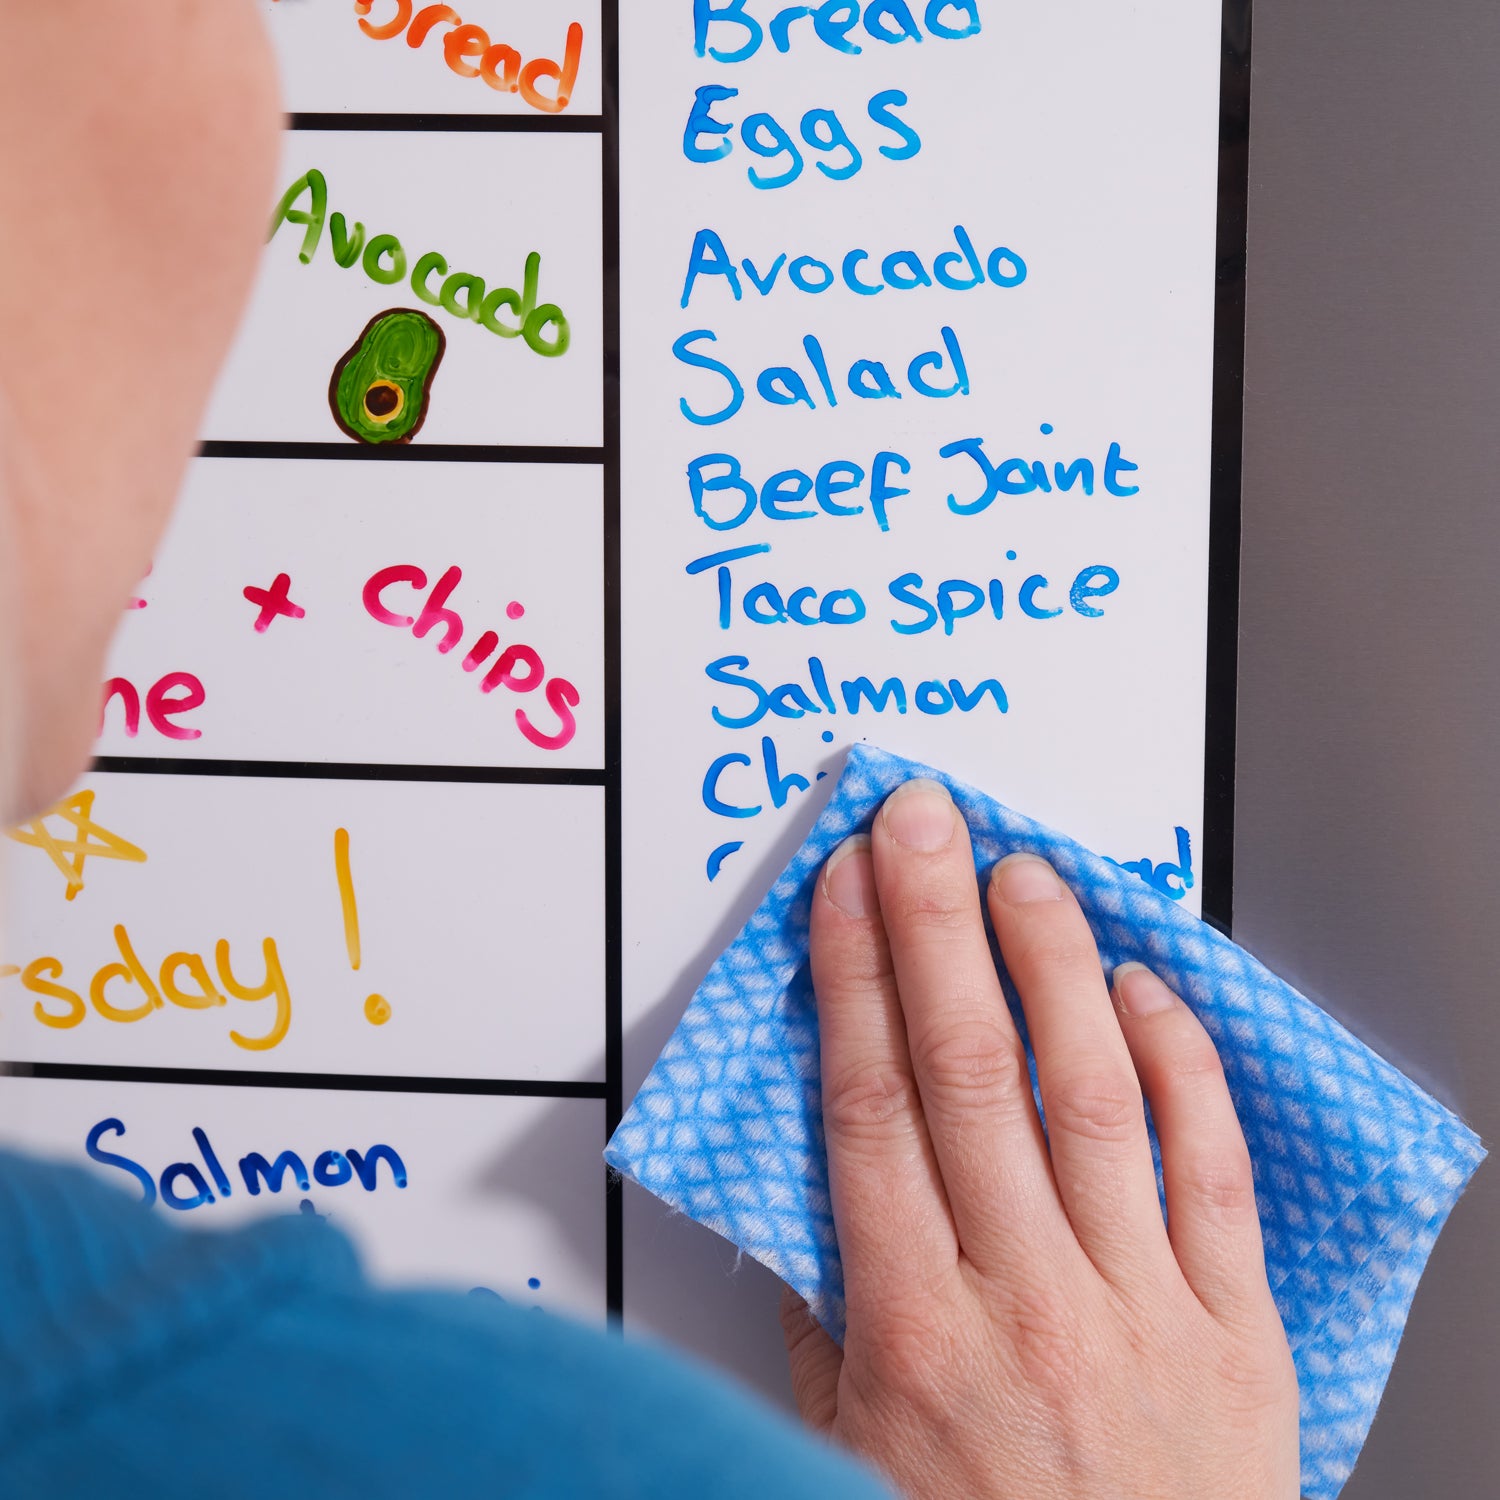 Bread
Avocado
+ Chips
sday !
Salmon
Bread
Eggs
Avocado
Salad
Beef Joint
Taco spice
Salmon